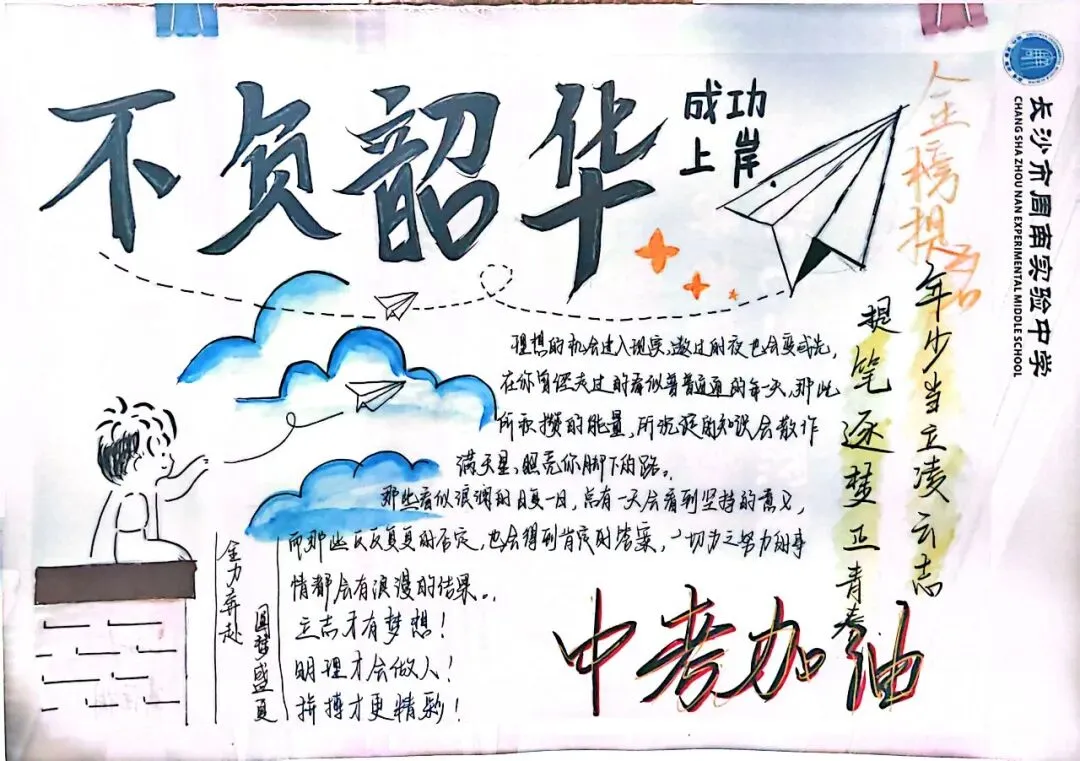 不负韶华
成功
上岸
金榜提名
长沙市周南实验中学
CHANG SHA ZHOU NAN EXPERIMENTAL MIDDLE SCHOOL
年少当立凌云志
提笔逐梦正青春
理想的机会进入现实,熬过的夜也会变成光,
在你身侧走过的看似普普通通的每一天,那些
所积攒的能量,所说过的知识会散作
满天星,照亮你脚下的路。
那些看似浪漫的日复一日,总有一天会看到坚持的意义,
而那些反反复复的否定,也会得到肯定的答案,一切为之努力的事
情都会有浪漫的结果。
立志才有梦想!
明理才会做人!
拚搏才更精彩!
全力奔赴
圆梦盛夏
中考加油